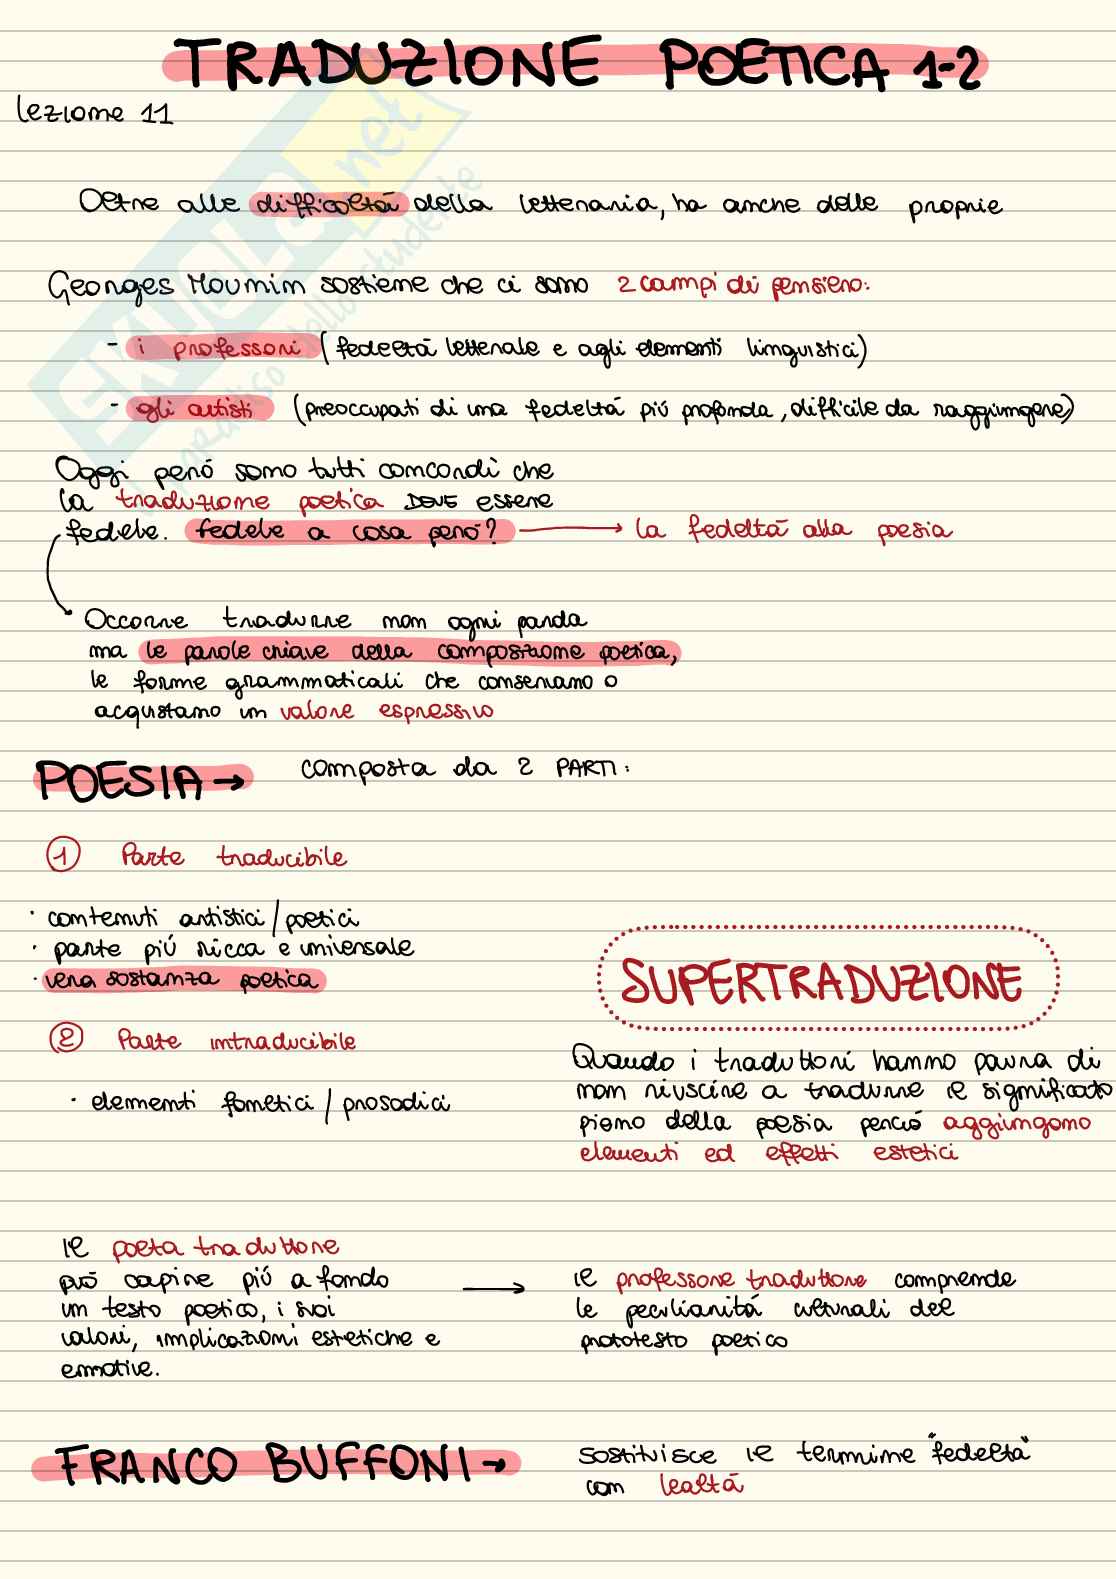 TRADUZIONE POETICA 1-2
lezione 11
Oltre alle difficoltà della letteraria, ha anche delle proprie
Georges Mounin sostiene che ci sono 2 campi di pensiero:
- i professori (fedeltà letterale e agli elementi linguistici)
- gli artisti (preoccupati di una fedeltà più profonda, difficile da raggiungere)
Oggi però sono tutti concordi che
la traduzione poetica DEVE essere
fedele. fedele a cosa però? → la fedeltà alla poesia
Occorre tradurre non ogni parola
ma le parole chiave della composizione poetica,
le forme grammaticali che conservano o
acquistano un valore espressivo
POESIA → composta da 2 PARTI:
1 Parte traducibile
· contenuti artistici/poetici
· parte più ricca e universale
· vera sostanza poetica
2 Parte intraducibile
· elementi fonetici / prosodici
SUPERTRADUZIONE
Quando i traduttori hanno paura di
non riuscire a tradurre il significato
pieno della poesia perciò aggiungono
elementi ed effetti estetici
il poeta traduttore
può capire più a fondo
un testo poetico, i suoi
valori, implicazioni estetiche e
emotive.
→
il professore traduttore comprende
le peculiarità culturali del
prototesto poetico
FRANCO BUFFONI → sostituisce il termine "fedeltà"
con lealtà
SKUOLA.net
il paradiso dello studente